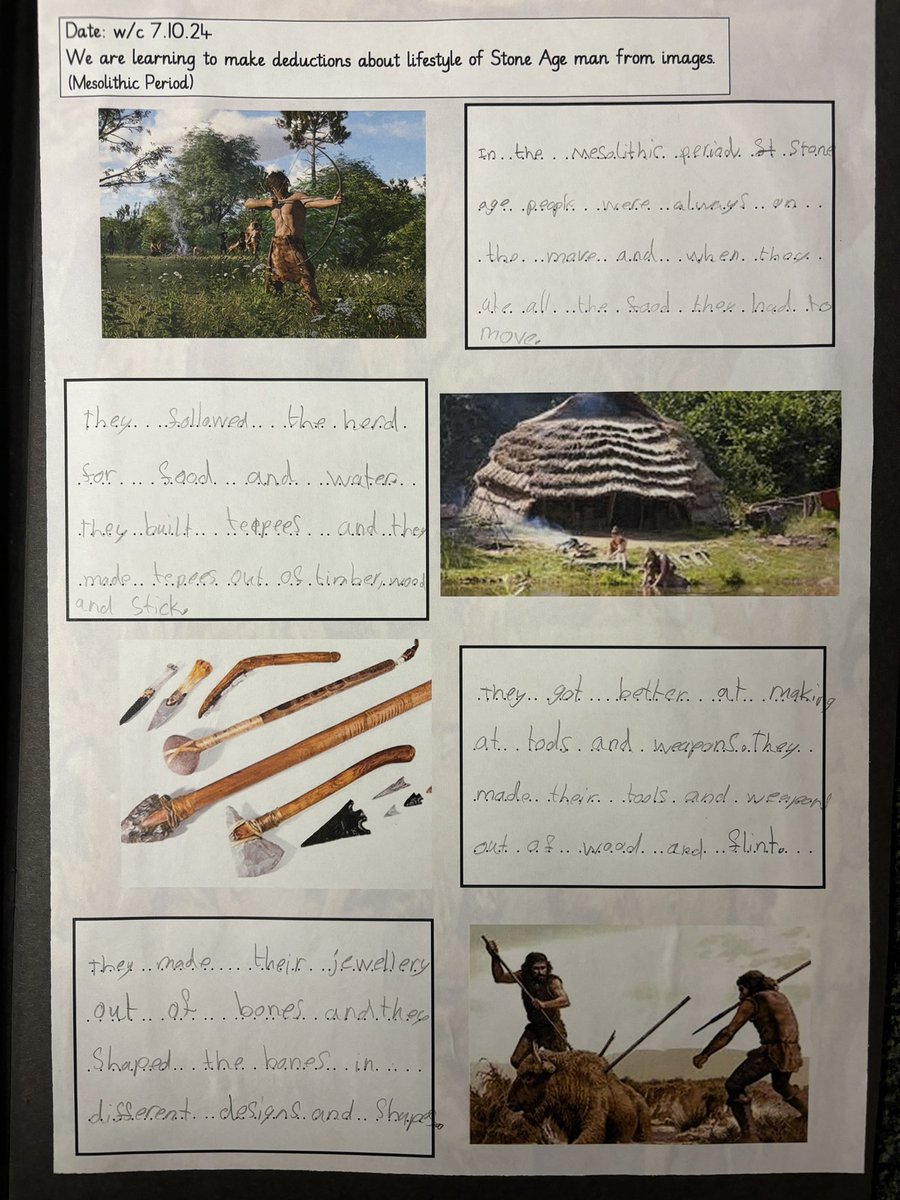 Date: w/c 7.10.24
We are learning to make deductions about lifestyle of Stone Age man from images.
(Mesolithic Period)
In the mesolithic period St Stone
age people were always on
the move and when they
ate all the food they had to
move.
they followed the herd
for food and water
they built teepees and they
made tepees out of timber, wood
and stick.
they got better at making
at tools and weapons. They
made their tools and weapons
out of wood and flint.
they made their jewellery
out of bones and they
Shaped the bones in
different designs and Shapes.